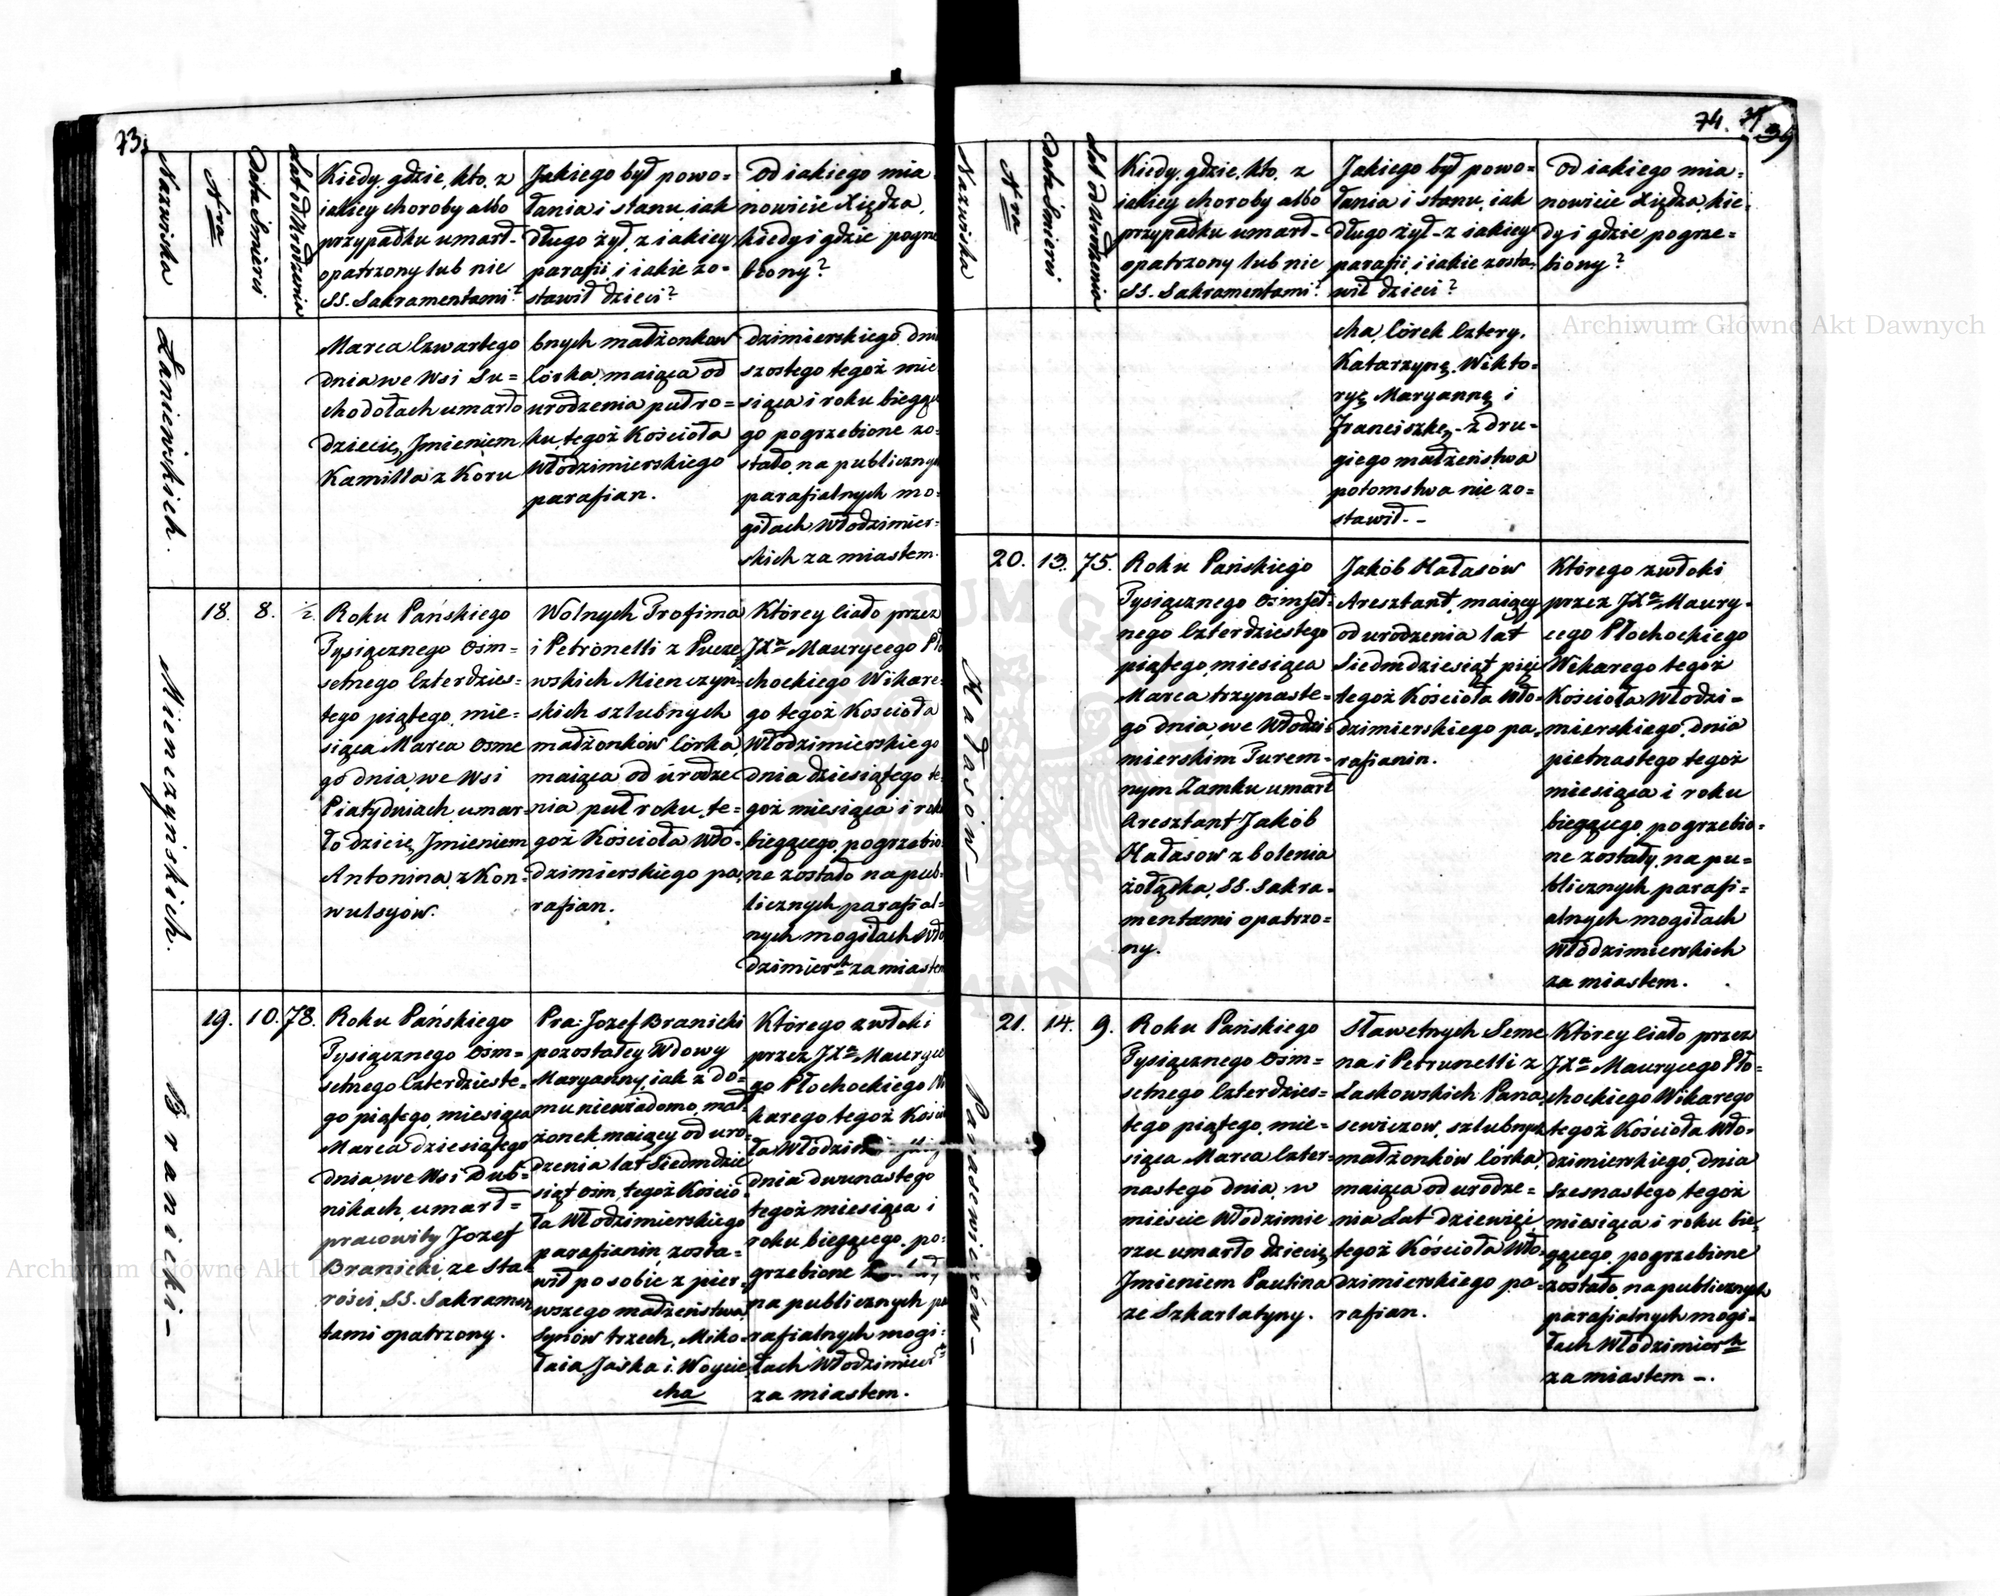 73.
Nazwiska
Nra
Data Śmierci
Lat od Urodzenia
Kiedy, gdzie, kto, z
iakiey choroby albo
przypadku umarł-
opatrzony lub nie
SS. Sakramentami?
Jakiego był powo=
łania i stanu, iak
długo żył, z iakiey
parafii, i iakie zo=
stawił dzieci?
Od iakiego mia
nowicie Xiędza,
kiedy i gdzie pogrze
biony?
Łaniewskich.
Marca Czwartego
dnia we Wsi Su=
chodołach umarło
dziecię, Jmieniem
Kamilla z Koru
bnych małżonkow
Córka, maiąca od
urodzenia puł ro=
ku, tegoż Kościoła
Włodzimierskiego
parafian.
dzimierskiego dnia
szostego tegoż mie
siąca i roku bieżące
go pogrzebione zo=
stało, na publicznych
parafialnych mo=
giłach Włodzimier=
skich za miastem.
Mienczyńskich.
18.
8.
½.
Roku Pańskiego
Tysiącznego Ośm=
setnego Czterdzies=
tego piątego, mie=
siąca Marca Osme
go dnia, we Wsi
Piatydniach umar=
ło dziecię, Jmieniem
Antonina, z Kon=
wulsyów.
Wolnych Trofima
i Petronelli z Pucze
wskich Mienczyn=
skich szlubnych
małżonków Córka,
maiąca od urodze
nia puł roku, te=
goż Kościoła Wło=
dzimierskiego pa=
rafian.
Którey ciało przez
JXa Maurycego Pło
chockiego Wikare=
go tegoż Kościoła
Włodzimierskiego
dnia dziesiątego te=
goż miesiąca i roku
bieżącego, pogrzebio=
ne zostało na pub=
licznych parafial=
nych mogiłach Wło
dzimiersk za miastem
Branicki-
19.
10.
78.
Roku Pańskiego
Tysiącznego Ośm=
setnego Czterdzieste=
go piątego, miesiąca
Marca dziesiątego
dnia, we Wsi Dub=
nikach, umarł=
pracowity Jozef
Branicki, ze sta=
rości, SS. Sakramen
tami opatrzony.
Pra: Jozef Branicki
pozostałey Wdowy
Maryanny, iak z do=
mu niewiadomo, mał=
żonek, maiący od uro=
dzenia lat Siedmdzie
siąt ośm, tegoż Kościo=
ła Włodzimierskiego
parafianin, zosta=
wił po sobie z pier=
wszego małżeństwa
Synów trzech, Miko=
łaia, Jaśka i Woycie
cha
Którego zwłoki
przez JXa Mauryce
go Płochockiego Wi
karego tegoż Kościo
ła Włodzim
dnia dwunastego
tegoż miesiąca i
roku bieżącego, po=
grzebione
na publicznych pa
rafialnych mogi=
łach Włodzimiersk
za miastem.
74.
39
Nazwiska
Nra
Data Śmierci
Lat od Urodzenia
Kiedy, gdzie, kto, z
iakiey choroby albo
przypadku umarł-
opatrzony lub nie
SS. Sakramentami?
Jakiego był powo=
łania i stanu, iak
długo żył- z iakiey
parafii, i iakie zosta=
wił dzieci?
Od iakiego mia=
nowicie Xiędza, kie=
dy i gdzie pogrze=
biony?
cha, Córek Cztery,
Katarzynę, Wikto=
ryę, Maryannę, i
Franciszkę,- z dru=
giego małżeństwa
potomstwa nie zo=
stawił.-
Hałasów-
20.
13.
75.
Roku Pańskiego
Tysiącznego Ośmset=
nego Czterdziestego
piątego, miesiąca
Marca trzynaste=
go dnia, we Włodzi=
mierskim Turem=
nym Zamku umarł
Aresztant Jakób
Hałasow z bolenia
żołądka, SS. Sakra=
mentami opatrzo=
ny.
Jakób Hałasów
Aresztant, maiący
od urodzenia lat
Siedmdziesiąt pięć
tegoż Kościoła Wło=
dzimierskiego pa=
rafianin.
Którego zwłoki
przez JXa Maury=
cego Płochockiego
Wikarego tegoż
Kościoła Włodzi=
mierskiego, dnia
pietnastego tegoż
miesiąca i roku
bieżącego, pogrzebio=
ne zostały, na pu=
blicznych parafi=
alnych mogiłach
Włodzimierskich
za miastem.
Panasewiczów-
21.
14.
9.
Roku Pańskiego
Tysiącznego Ośm=
setnego Czterdzies=
tego piątego, mie=
siąca Marca Czter=
nastego dnia, w
mieście Włodzimie
rzu umarło dziecię,
Jmieniem Paulina
ze Szkarlatyny.
Sławetnych Seme
na i Petrunelli z
Laskowskich Pana=
sewiczow, szlubnych
małżonków Córka,
maiąca od urodze=
nia Lat dziewięć,
tegoż Kościoła Wło=
dzimierskiego pa=
rafian.
Którey ciało przez
JXa Maurycego Pło=
chockiego Wikarego
tegoż Kościoła Wło=
dzimierskiego, dnia
szesnastego tegoż
miesiąca i roku bie=
żącego, pogrzebione
zostało, na publicznych
parafialnych mogi=
łach Włodzimiersk
za miastem -.
Archiwum Główne Akt Dawnych
Archiwum Główne Akt